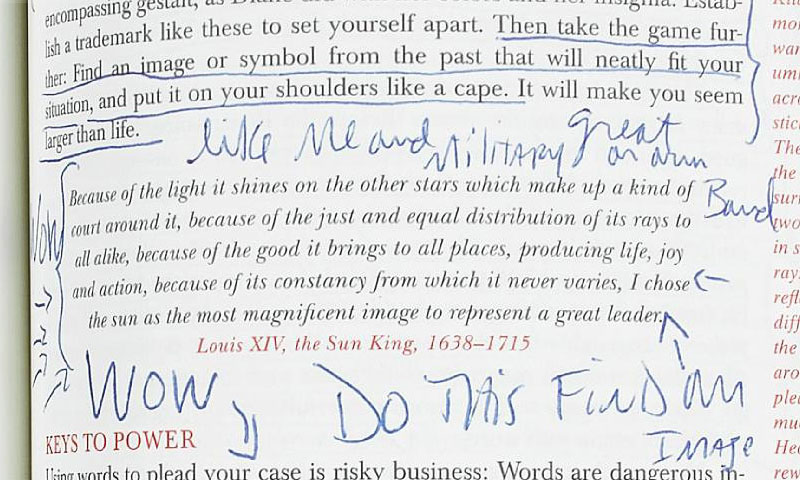 encompassing gestalt, as Diane did with her
lish a trademark like these to set yourself apart. Then take the game fur-
ther: Find an image or symbol from the past that will neatly fit your
situation, and put it on your shoulders like a cape. It will make you seem
larger than life.
like Me and Military great
on arm
Band
Because of the light it shines on the other stars which make up a kind of
court around it, because of the just and equal distribution of its rays to
all alike, because of the good it brings to all places, producing life, joy
and action, because of its constancy from which it never varies, I chose
the sun as the most magnificent image to represent a great leader.
Wow
Louis XIV, the Sun King, 1638–1715
WOW Do This FinD an
Image
KEYS TO POWER
Using words to plead your case is risky business: Words are dangerous in-